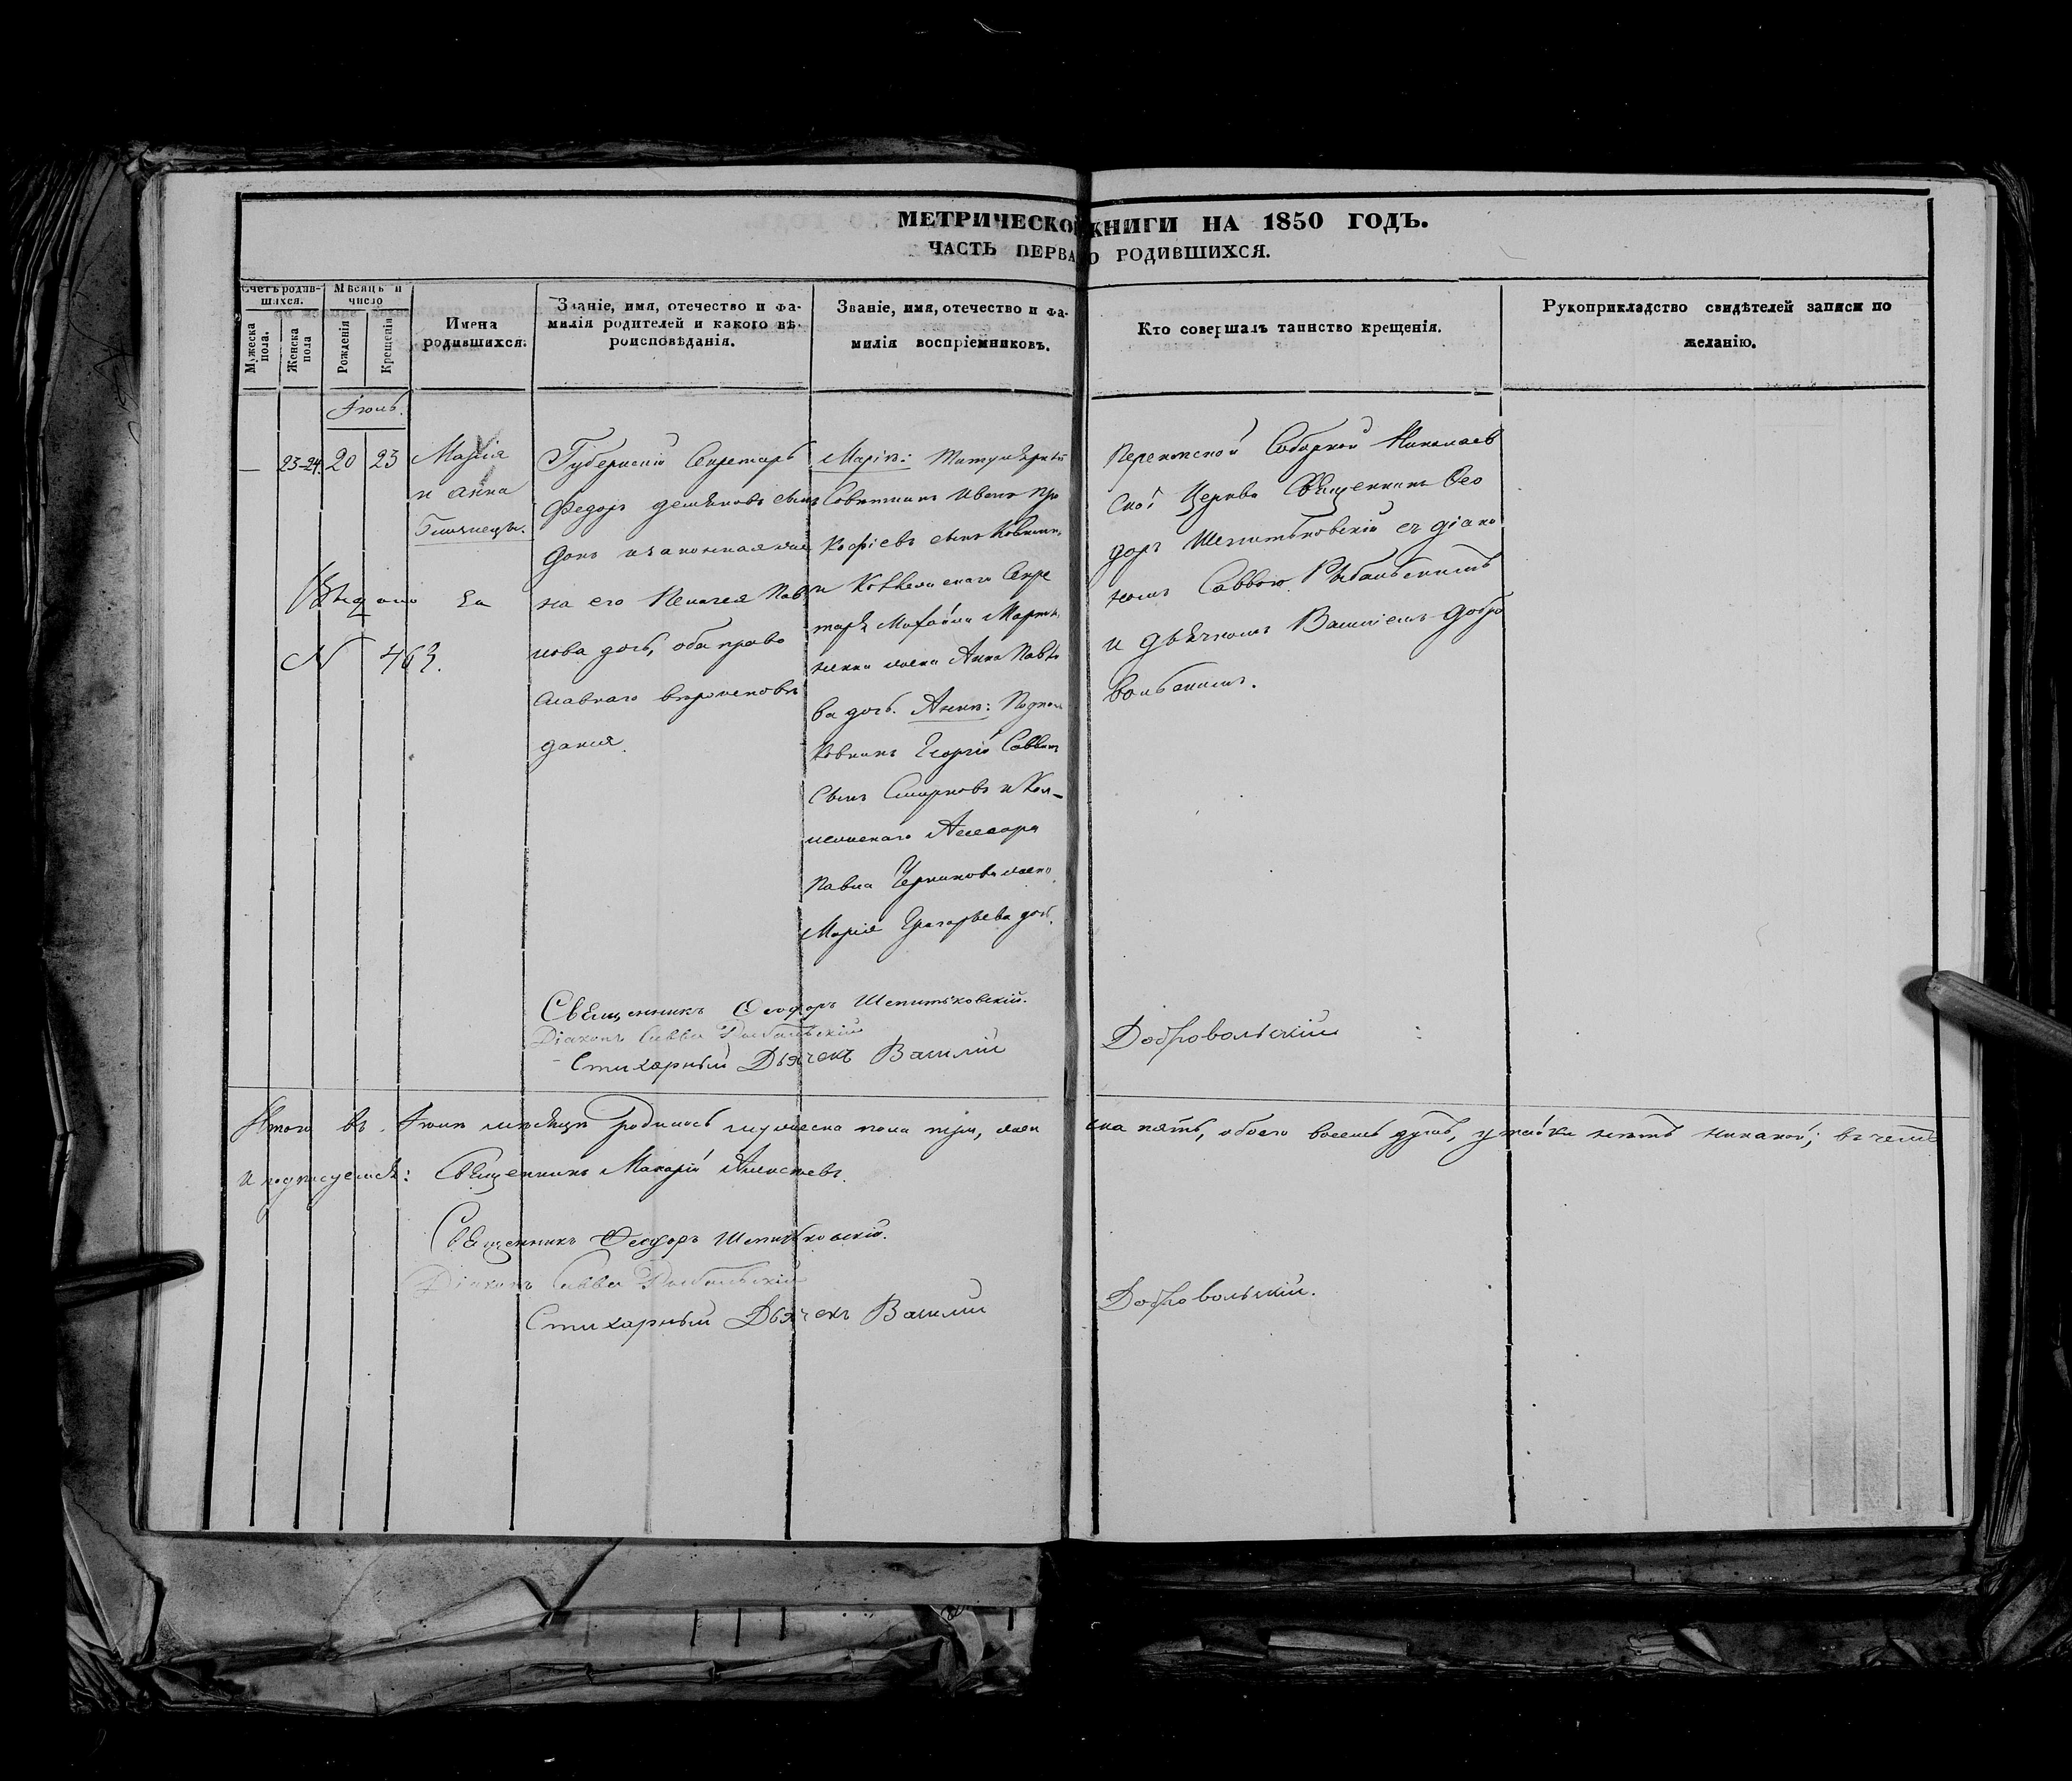 МЕТРИЧЕСКОЙ КНИГИ НА 1850 ГОДЪ.
ЧАСТЬ ПЕРВА О РОДИВШИХСЯ.
Счетъ родив-
шихся.
Мужеска пола.
Женска пола
Мѣсяцъ и
число
Рожденія
Крещенія
Имена
родившихся.
Званіе, имя, отечество и фа-
милія родителей и какого вѣ-
роисповѣданія.
Званіе, имя, отечество и фа-
милія воспріемниковъ.
Кто совершалъ таинство крещенія.
Рукоприкладство свидѣтелей записи по
желанію.
Іюнь.
— 23-24. 20 23
Марія
и Анна
Близнецы.
Выдано за
N 463.
Губернскій Секретарь
Федоръ сынъ
и законная жена
его Пелагея
нова дочь, оба право
славнаго вѣроисповѣ
данія.
Маріи: Титулярный
Совѣтникъ Иванъ Про
кофіевъ сынъ
и Коллежскаго Секре
таря Михаила
жена Анна Павло
ва дочь. Анны: Подпол
ковникъ Георгій Саввинъ
сынъ Смирновъ и Кол-
лежскаго Асессора
Павла Черникова жена
Марія Григорьева доч.
Перекопской Соборной Николаев
ской Церкви Священникъ Фео
доръ Шепитьковскій съ діако
номъ Саввою Рыбальскимъ
и дьячкомъ Василіемъ Добро
вольскимъ.
Священникъ Феодоръ Шепитьковскій.
Діаконъ Савва Рыбальскій
Стихарный Дьячекъ Василій Добровольскій
Итого въ Іюнѣ мѣсяцѣ родилось мужеска пола три, жен ска пять, обоего восемь душъ, нѣтъ никакой; въ чемъ
и подписуемся: Священникъ Макарій
Священникъ Феодоръ Шепитьковскій.
Діаконъ Савва Рыбальскій
Стихарный Дьячекъ Василій Добровольскій.